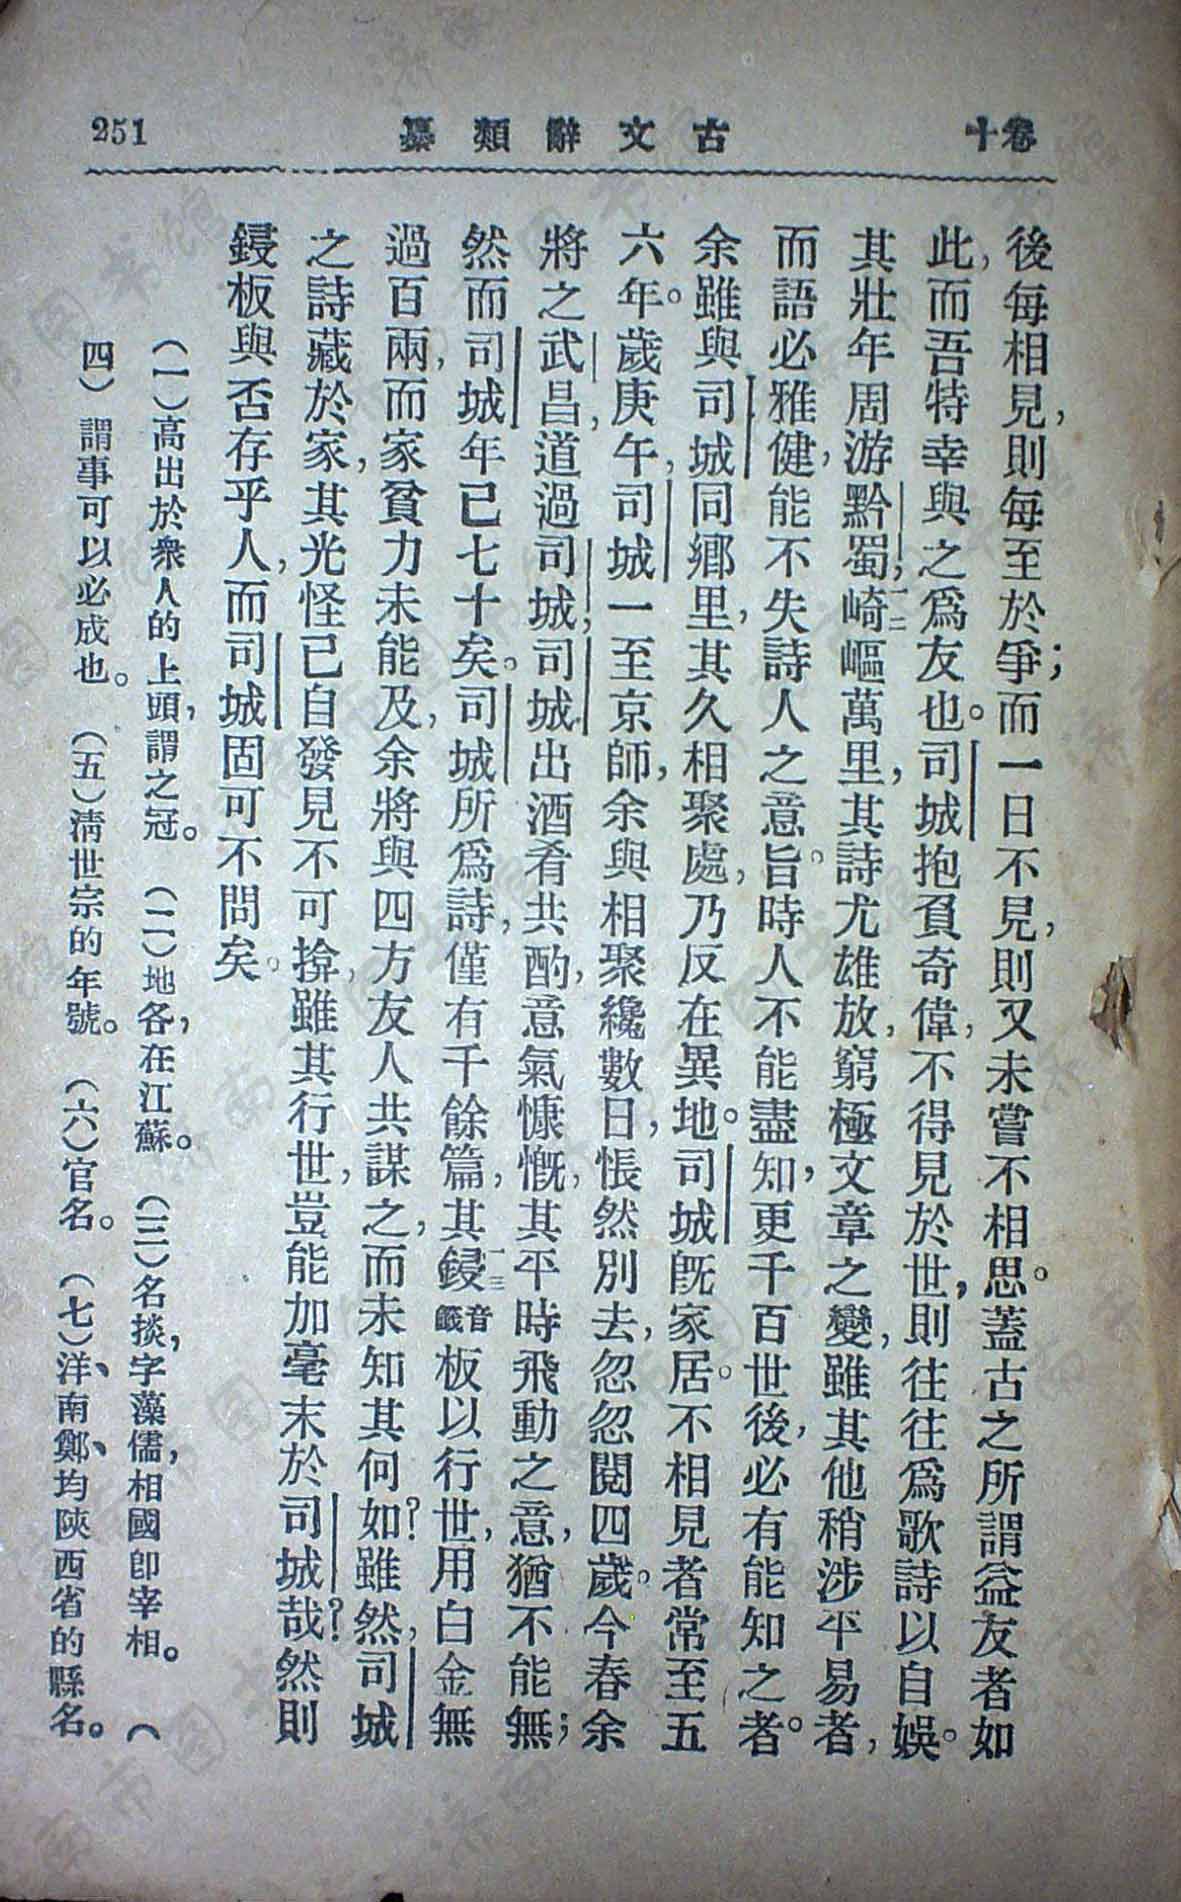 卷十
古文辭類纂
251
後每相見，則每至於爭；而一日不見，則又未嘗不相思。蓋古之所謂益友者如
此，而吾特幸與之爲友也。司城抱負奇偉，不得見於世，則往往爲歌詩以自娛。
其壯年周游黔蜀，一二崎嶇萬里，其詩尤雄放，窮極文章之變，雖其他稍涉平易者，
而語必雅健，能不失詩人之意旨。時人不能盡知，更千百世後，必有能知之者。
余雖與司城同鄉里，其久相聚處，乃反在異地。司城既家居。不相見者常至五
六年。歲庚午，司城一至京師，余與相聚纔數日，悵然別去，忽忽閱四歲。今春余
將之武昌，道過司城；司城出酒肴共酌，意氣慷慨，其平時飛動之意，猶不能無；
然而司城年已七十矣。司城所爲詩，僅有千餘篇，其鋟一三音籤板以行世，用白金無
過百兩，而家貧力未能及，余將與四方友人共謀之，而未知其何如？雖然，司城
之詩藏於家，其光怪已自發見不可揜，雖其行世，豈能加毫末於司城哉？然則
鋟板與否存乎人，而司城固可不問矣。
（一）高出於衆人的上頭，謂之冠。（二）地各，在江蘇。（三）名掞，字藻儒，相國卽宰相。（
四）謂事可以必成也。（五）清世宗的年號。（六）官名。（七）洋、南鄭、均陝西省的縣名。